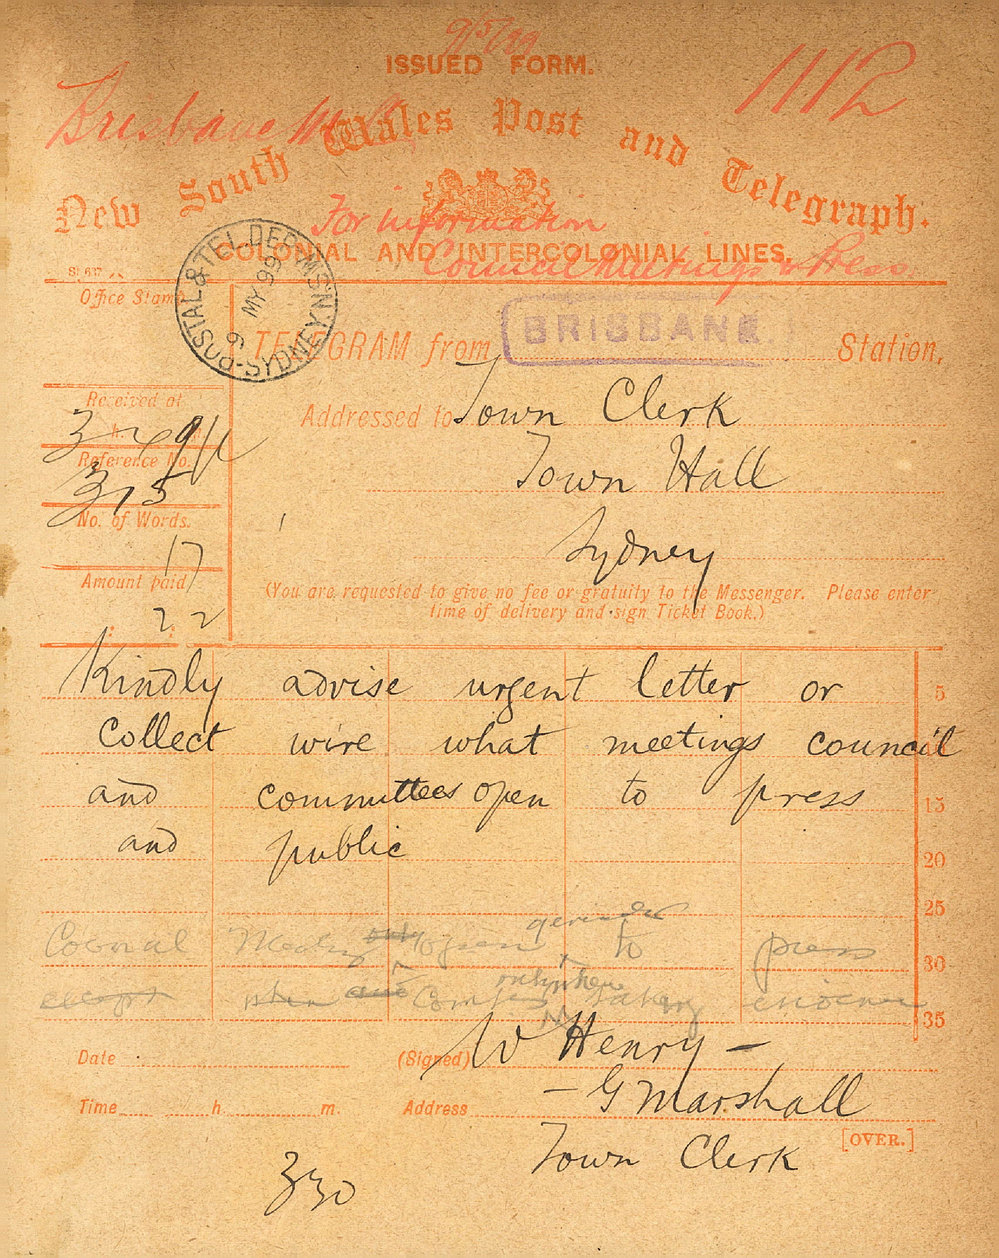 9/5/99
ISSUED FORM.
1112
Brisbane
New South Wales Post and Telegraph.
For information
COLONIAL AND INTERCOLONIAL LINES.
Council Meetings & Press
Sl 637
POSTAL & TEL. DEP. N.S.W. SYDNEY
9 MY 99
Office Stamp
TELEGRAM from BRISBANE Station,
Addressed to Town Clerk
Town Hall
Sydney
Received at
Reference No.
315
No. of Words.
17
Amount paid
2 2
(You are requested to give no fee or gratuity to the Messenger. Please enter
time of delivery and sign Ticket Book.)
Kindly advise urgent letter or 5
collect wire what meetings council
and committees open to press 15
and public 20
25
generally
Council Meetings only open to press 30
only when
except when and Comtees taking evidence 35
Date
(Signed) W Henry -
- G Marshall
Time h. m.
Address
[OVER.]
Town Clerk
330